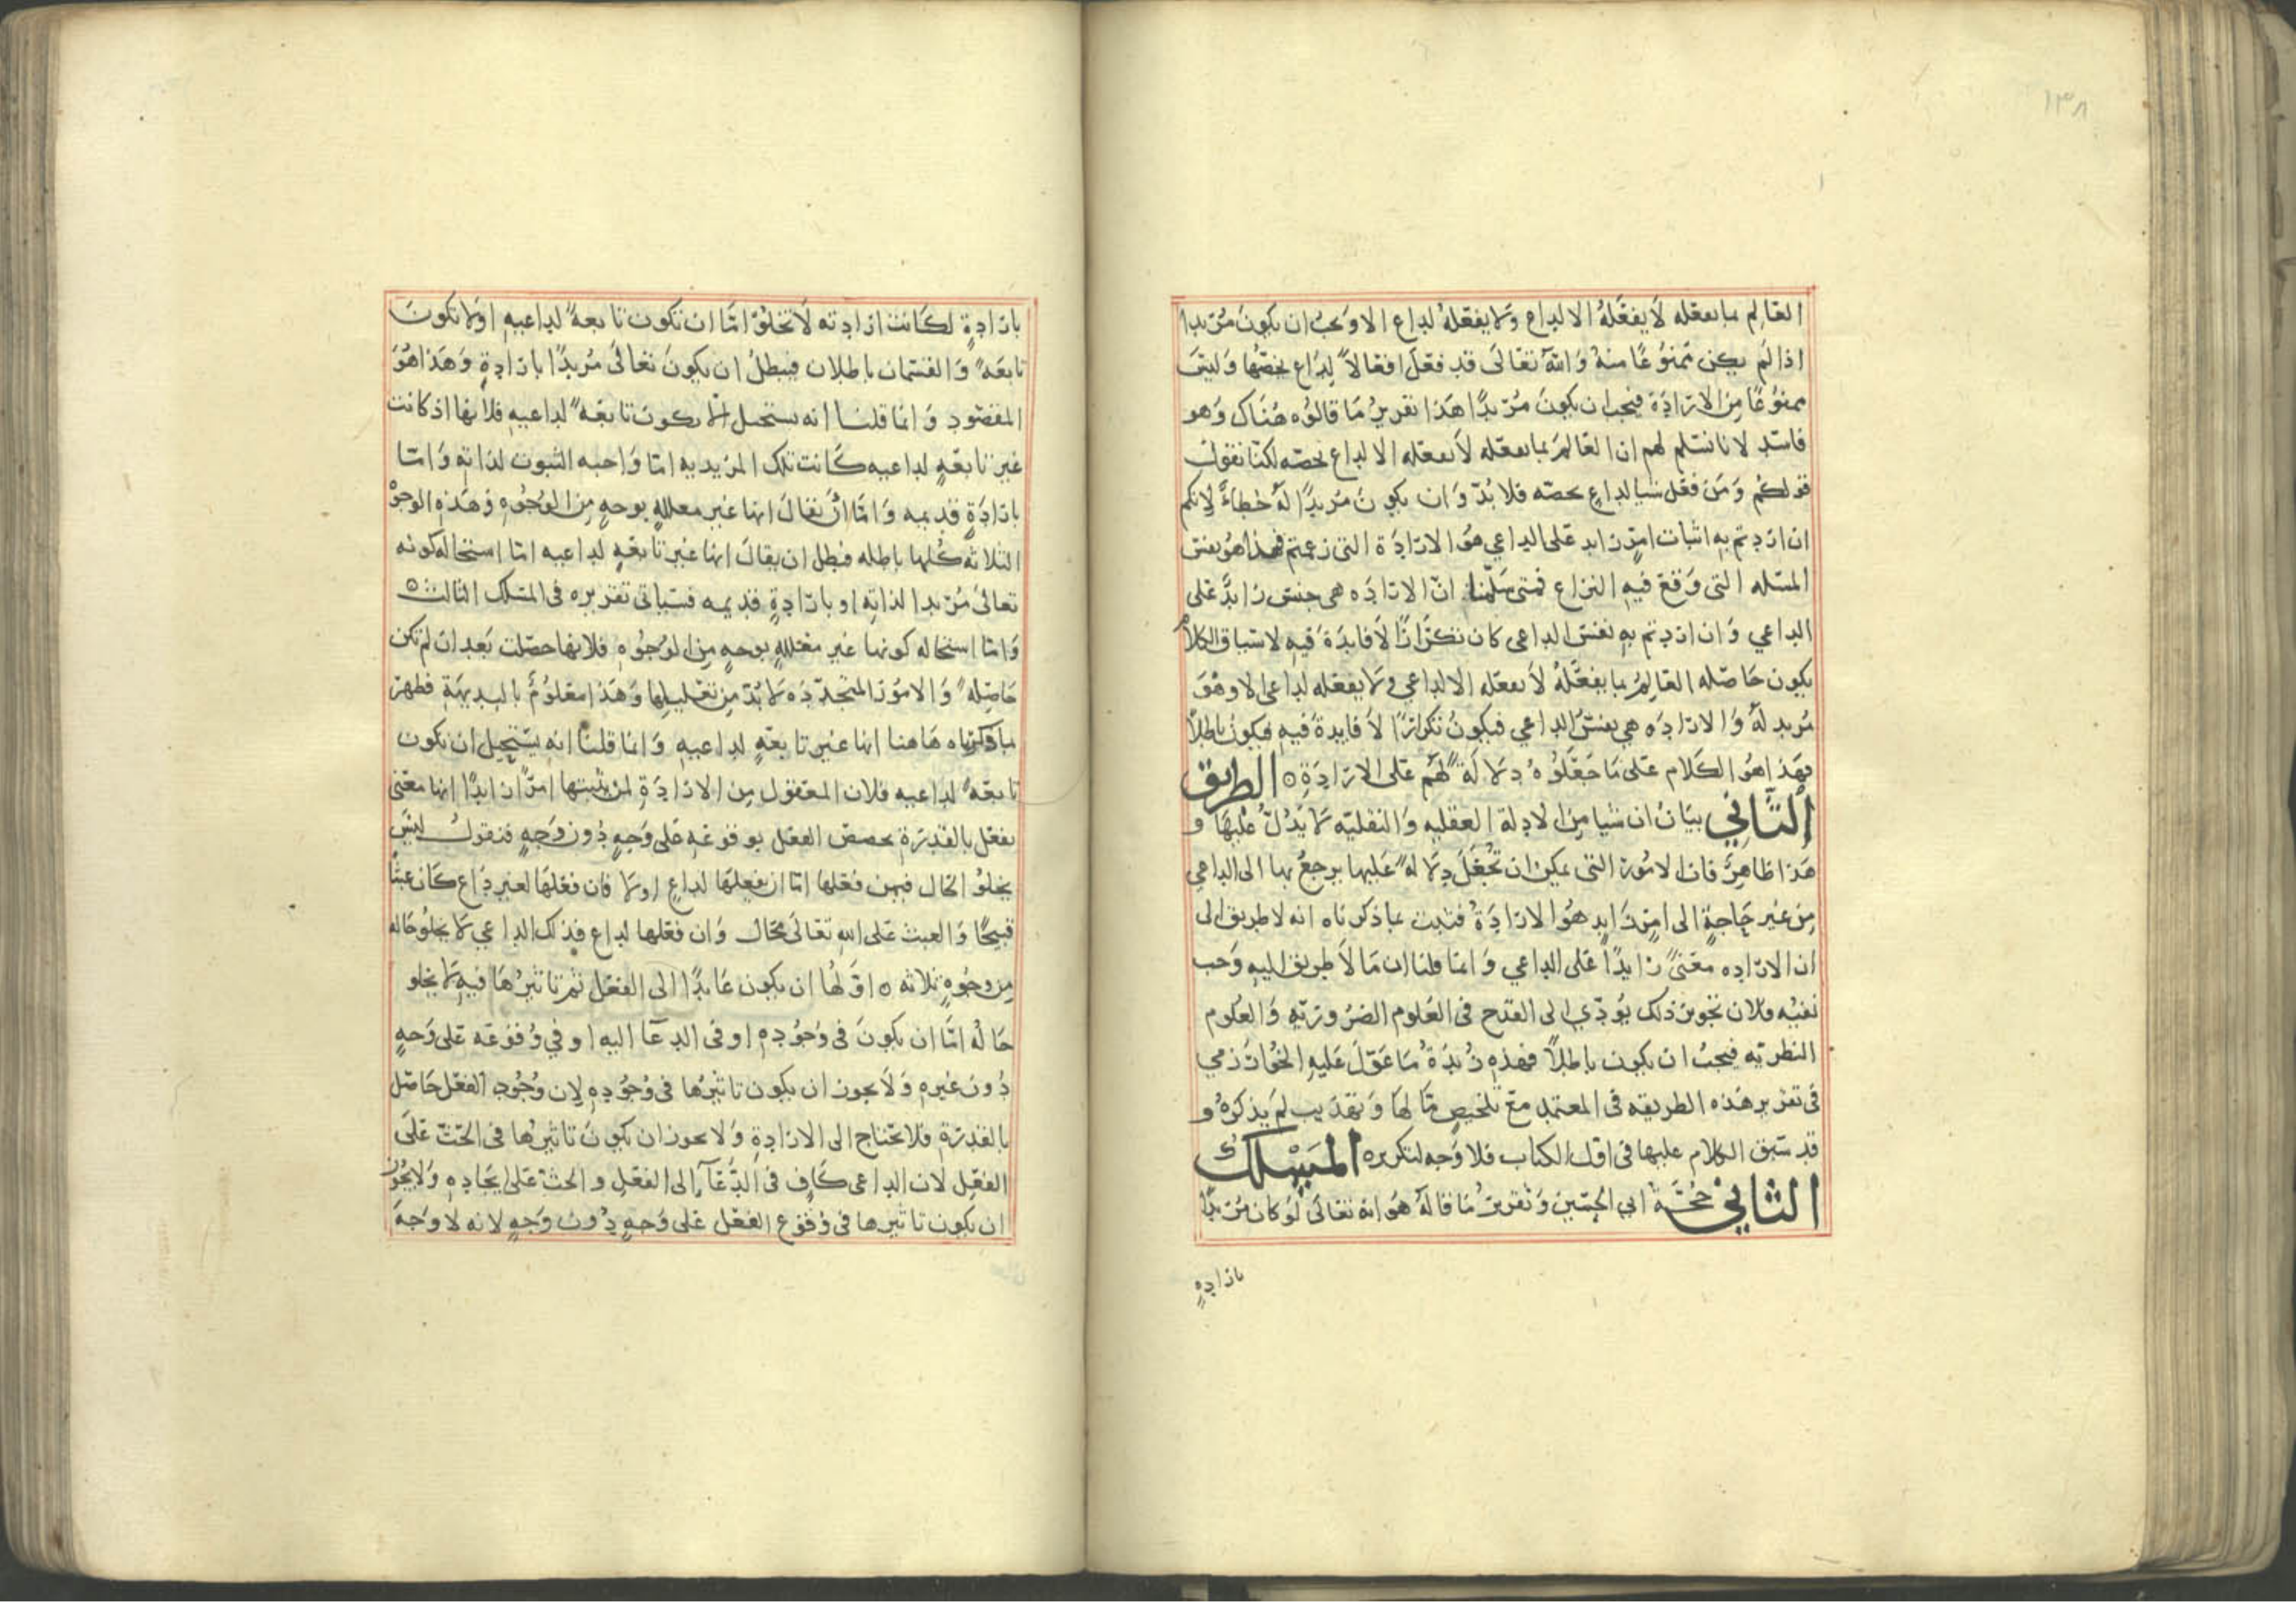 ١٣٨
العالم بما يفعله لا يفعله الا لداع ولا يفعله لداع الا ويجب ان يكون مريدا
اذا لم يكن ممنوعا منه والله تعالى قد فعل افعالا لداع يخصها وليس
ممنوعا من الارادة فيجب ان يكون مريدا هذا تقرير ما قالوه هناك وهو
فاسد لانا نسلم لهم ان العالم بما يفعله لا يفعله الا لداع يخصه لكنا نقول
قولكم ومن فعل شيا لداع يخصه فلا بد وان يكون مريدا له خطاء لانكم
ان اردتم به اثبات امر زايد على الداعي هو الارادة التي زعمتم فهذا هو نفس
المسله التي وقع فيه النزاع فمتى سلمنا ان الاراده هي جنس زايد على
الداعي وان اردتم به نفس الداعي كان تكرارا لا فايدة فيه لان سياق الكلام
يكون حاصله العالم بما يفعله لا يفعله الا لداعي ولا يفعله لداعي الا وهو
مريد له والاراده هي نفس الداعي فيكون تكرارا لا فايدة فيه فيكون باطلا
فهذا هو الكلام على ما جعلوه دلالة لهم على الارادة ٥ الطريق
الثاني بيان ان شيا من الادلة العقليه والنقليه لا يدل عليها و
هذا ظاهر فان الامور التي يمكن ان تجعل دلالة عليها يرجع بها الى الداعي
من غير حاجة الى امر زايد هو الارادة فثبت بما ذكرناه انه لا طريق الى
ان الاراده معنى زايدا على الداعي وانما قلنا ان ما لا طريق اليه وجب
نفيه فلان تجويز ذلك يودي الى القدح في العلوم الضرورية والعلوم
النظرية فيجب ان يكون باطلا فهذه زبدة ما عول عليه الخوارزمي
في تقرير هذه الطريقه في المعتمد مع تلخيص منا لها وتهذيب لم يذكره و
قد سبق الكلام عليها في اول الكتاب فلا وجه لتكريره المسلك
الثاني حجة ابي الحسين وتقرير ما قاله هو انه تعالى لو كان مريدا
بارادة
بارادة لكانت ارادته لا تخلو اما ان تكون تابعة لداعيه اولا تكون
تابعة والقسمان باطلان فيبطل ان يكون تعالى مريدا بارادة وهذا هو
المقصود وانما قلنا انه يستحيل ان يكون تابعة لداعيه فلانها اذ كانت
غير تابعة لداعيه كانت تلك المريديه اما واجبه الثبوت لذاته واما
بارادة قديمه واما ان يقال انها غير معللة بوجه من الوجوه وهذه الوجوه
الثلاثه كلها باطله فبطل ان يقال انها غير تابعة لداعيه اما استحاله كونه
تعالى مريدا لذاته او بارادة قديمه فسياتي تقريره في المسلك الثالث ٥
واما استحاله كونها غير معللة بوجه من الوجوه فلانها حصلت بعد ان لم تكن
حاصلة والامور المتجدده لا بد من تعليلها وهذا معلوم بالبديهة فظهر
بما ذكرناه هاهنا انها غير تابعة لداعيه وانما قلنا انه يستحيل ان تكون
تابعة لداعيه فلان المعقول من الارادة لمن يثبتها امرا زايدا انها معنى
يفعل بالقدرة يخصص الفعل بوقوعه على وجه دون وجه فنقول ليس
يخلو الحال فيمن فعلها اما ان يفعلها لداع اولا فان فعلها لغير داع كان عبثا
قبيحا والعبث على الله تعالى محال وان فعلها لداع فذلك الداعي لا يخلو حاله
من وجوه ثلاثه ٥ اولها ان يكون عايدا الى الفعل ثم تاثيرها فيه لا يخلو
حاله اما ان يكون في وجوده او في الدعا اليه او في وقوعه على وجه
دون غيره ولا يجوز ان يكون تاثيرها في وجوده لان وجود الفعل حاصل
بالقدرة فلا يحتاج الى الارادة ولا يجوز ان يكون تاثيرها في الحث على
الفعل لان الداعي كاف في الدعآ الى الفعل والحث على ايجاده ولا يجوز
ان يكون تاثيرها في وقوع الفعل على وجه دون وجه لانه لا وجه